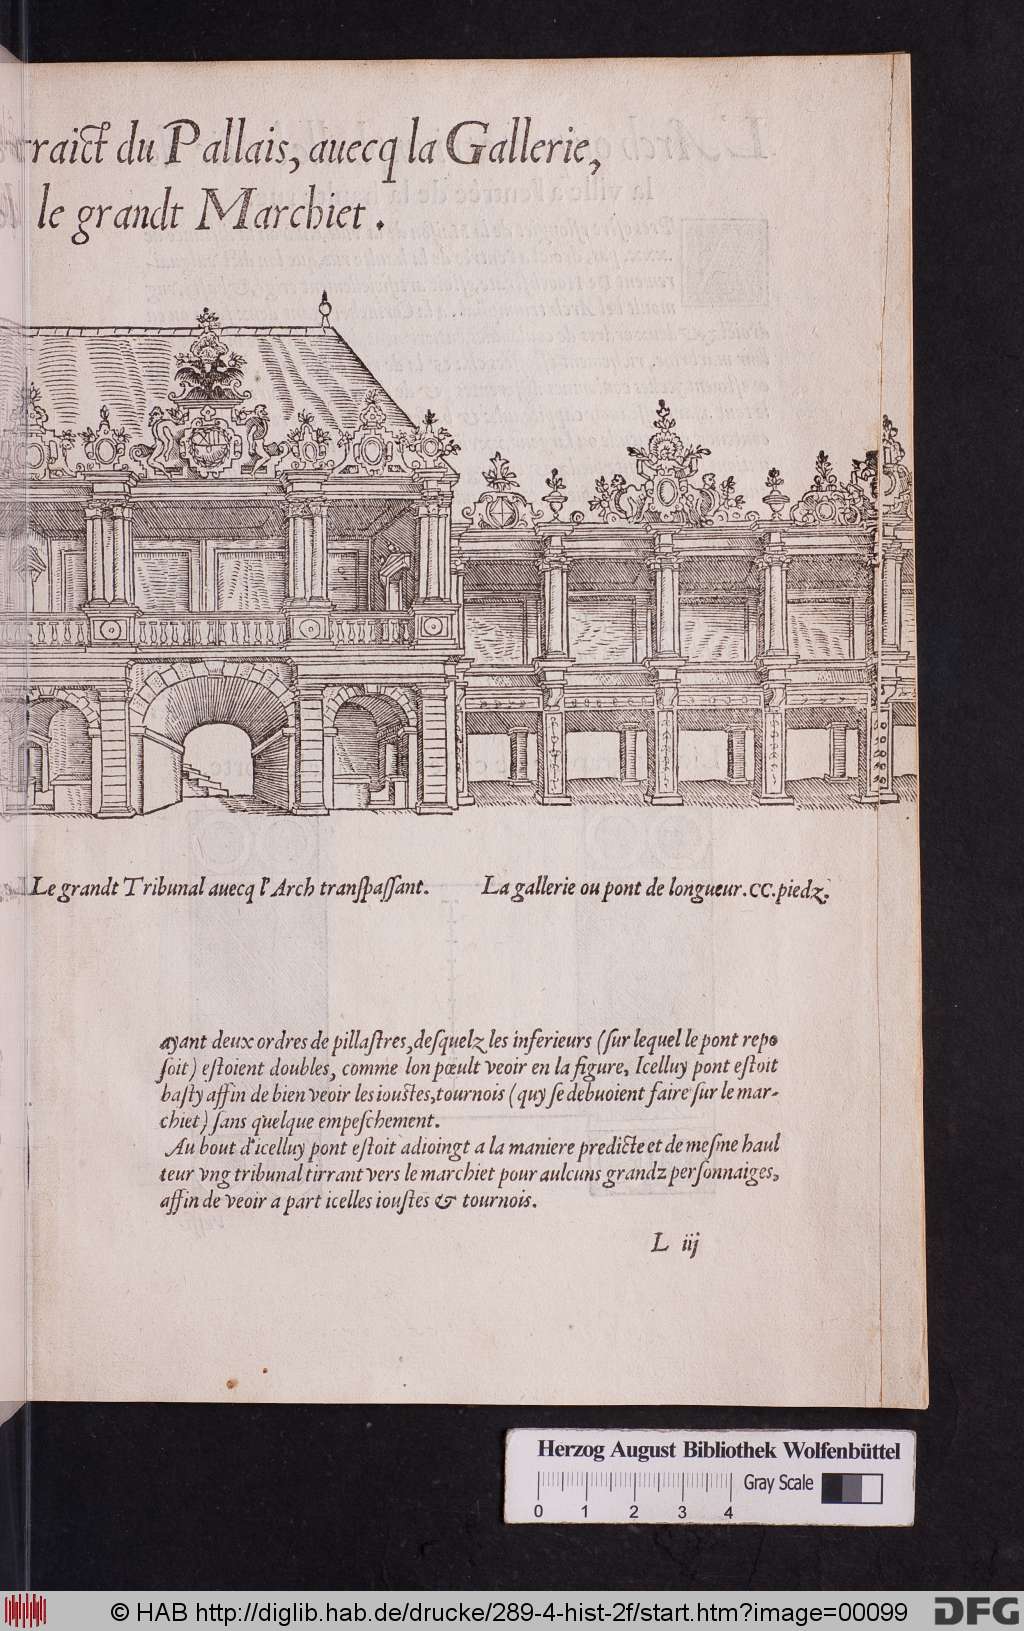 raict du Pallais, auecq la Gallerie,
le grandt Marchiet.
Le grandt Tribunal auecq l'Arch tranſpaſſant.
La gallerie ou pont de longueur. CC. piedz.
ayant deux ordres de pillaſtres, deſquelz les inferieurs (ſur lequel le pont repo
ſoit) eſtoient doubles, comme lon pœult veoir en la figure, Icelluy pont eſtoit
baſty affin de bien veoir les iouſtes, tournois (quy ſe debuoient faire ſur le mar-
chiet) ſans quelque empeſchement.
Au bout d'icelluy pont eſtoit adioingt a la maniere predicte et de meſme haul
teur vng tribunal tirrant vers le marchiet pour aulcuns grandz perſonnaiges,
affin de veoir a part icelles iouſtes & tournois.
L iij
Herzog August Bibliothek Wolfenbüttel
Gray Scale
0 1 2 3 4
© HAB http://diglib.hab.de/drucke/289-4-hist-2f/start.htm?image=00099
DFG